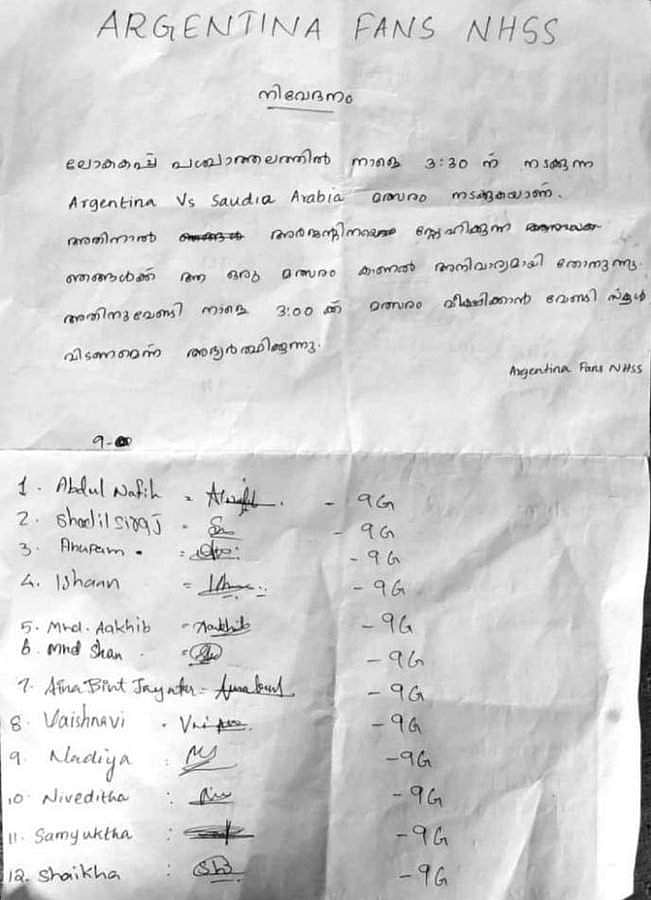 ARGENTINA FANS NHSS
നിവേദനം
ലോകകപ്പ് പശ്ചാത്തലത്തിൽ നാളെ 3:30 ന് നടക്കുന്ന
Argentina Vs Saudia Arabia മത്സരം നടക്കുകയാണ്.
അതിനാൽ അർജന്റീനയെ സ്നേഹിക്കുന്ന
ഞങ്ങൾക്ക് ആ ഒരു മത്സരം കാണൽ അനിവാര്യമായി തോന്നുന്നു.
അതിനുവേണ്ടി നാളെ 3:00 ക്ക് മത്സരം വീക്ഷിക്കാൻ വേണ്ടി സ്കൂൾ
വിടണമെന്ന് അഭ്യർത്ഥിക്കുന്നു.
Argentina Fans NHSS
9-
1. Abdul Nafih = - 9G
2. Shadil Siraj = - 9G
3. Anupam = - 9G
4. Ishaan = - 9G
5. Mhd. Aakhib = Aakhib - 9G
6. Mhd Shan = - 9G
7. Aina Bint - 9G
8. Vaishnavi - 9G
9. Nadiya : - 9G
10. Niveditha : - 9G
11. Samyuktha : - 9G
12. Shaikha : Sh - 9G